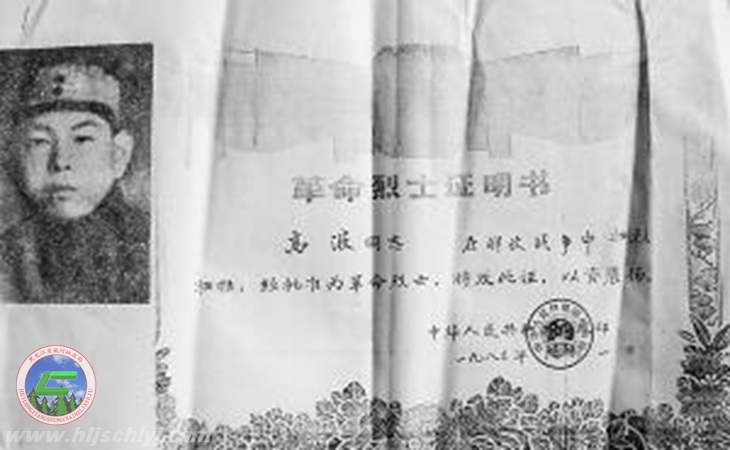 革命烈士证明书
高波同志 在解放战争中
牺牲，经批准为革命烈士，特发此证，以资褒扬。
中华人民共和国民政部
一九八三年
www.hljschlyj.com